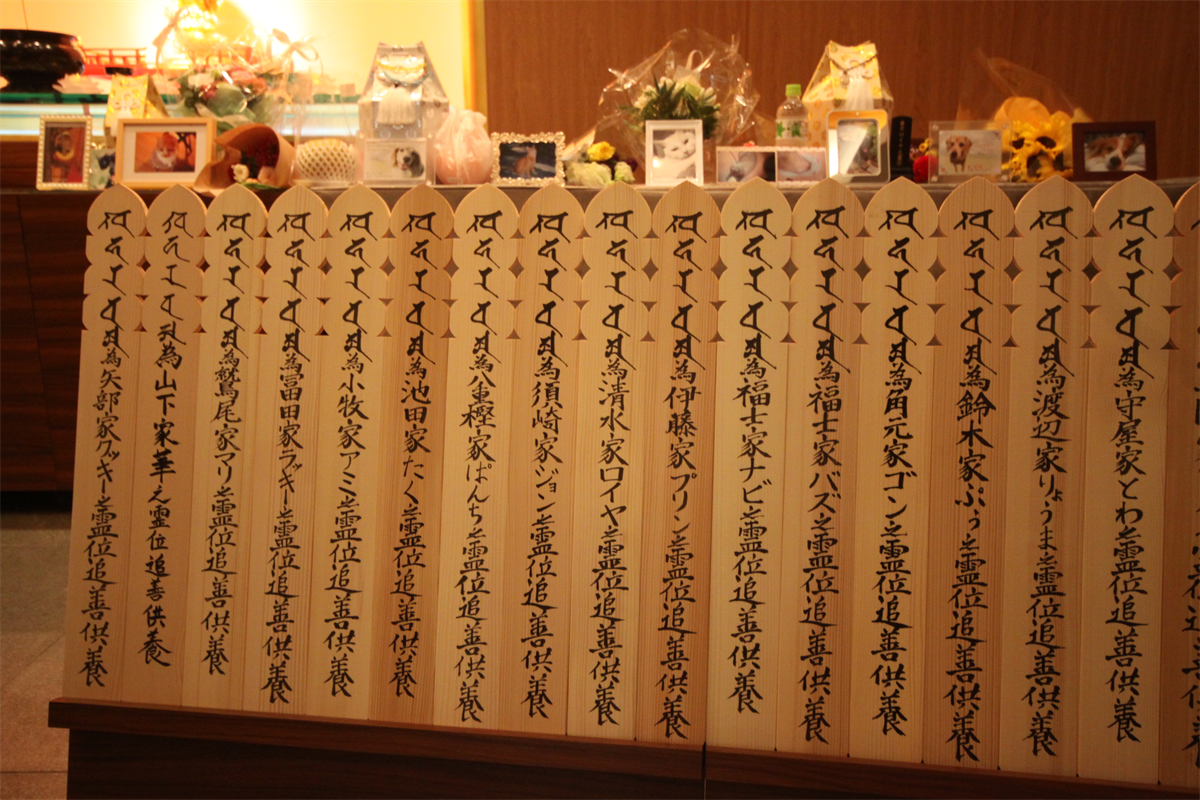 為守屋家とわ之霊位追善供養
為渡辺家りょうま之霊位追善供養
為鈴木家ぷぅ之霊位追善供養
為角元家ゴン之霊位追善供養
為福士家バズ之霊位追善供養
為福士家ナビ之霊位追善供養
為伊藤家プリン之霊位追善供養
為清水家ロイヤ之霊位追善供養
為須崎家ジョン之霊位追善供養
為八重樫家ぱんち之霊位追善供養
為池田家たく之霊位追善供養
為小牧家アミ之霊位追善供養
為冨田家ラッキー之霊位追善供養
為鷲尾家マリ之霊位追善供養
為山下家華之霊位追善供養
為矢部家クッキー之霊位追善供養